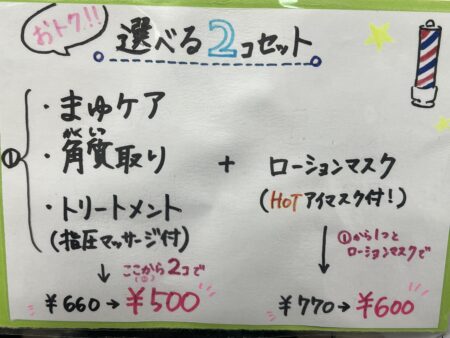 おトク!!
選べる2コセット
① ・まゆケア
かくしつ
・角質取り + ローションマスク
(HOTアイマスク付!)
・トリートメント
(指圧マッサージ付)
↓ ここから2コで
(①)
¥660→¥500
①から1つと
ローションマスクで
↓
¥770→¥600